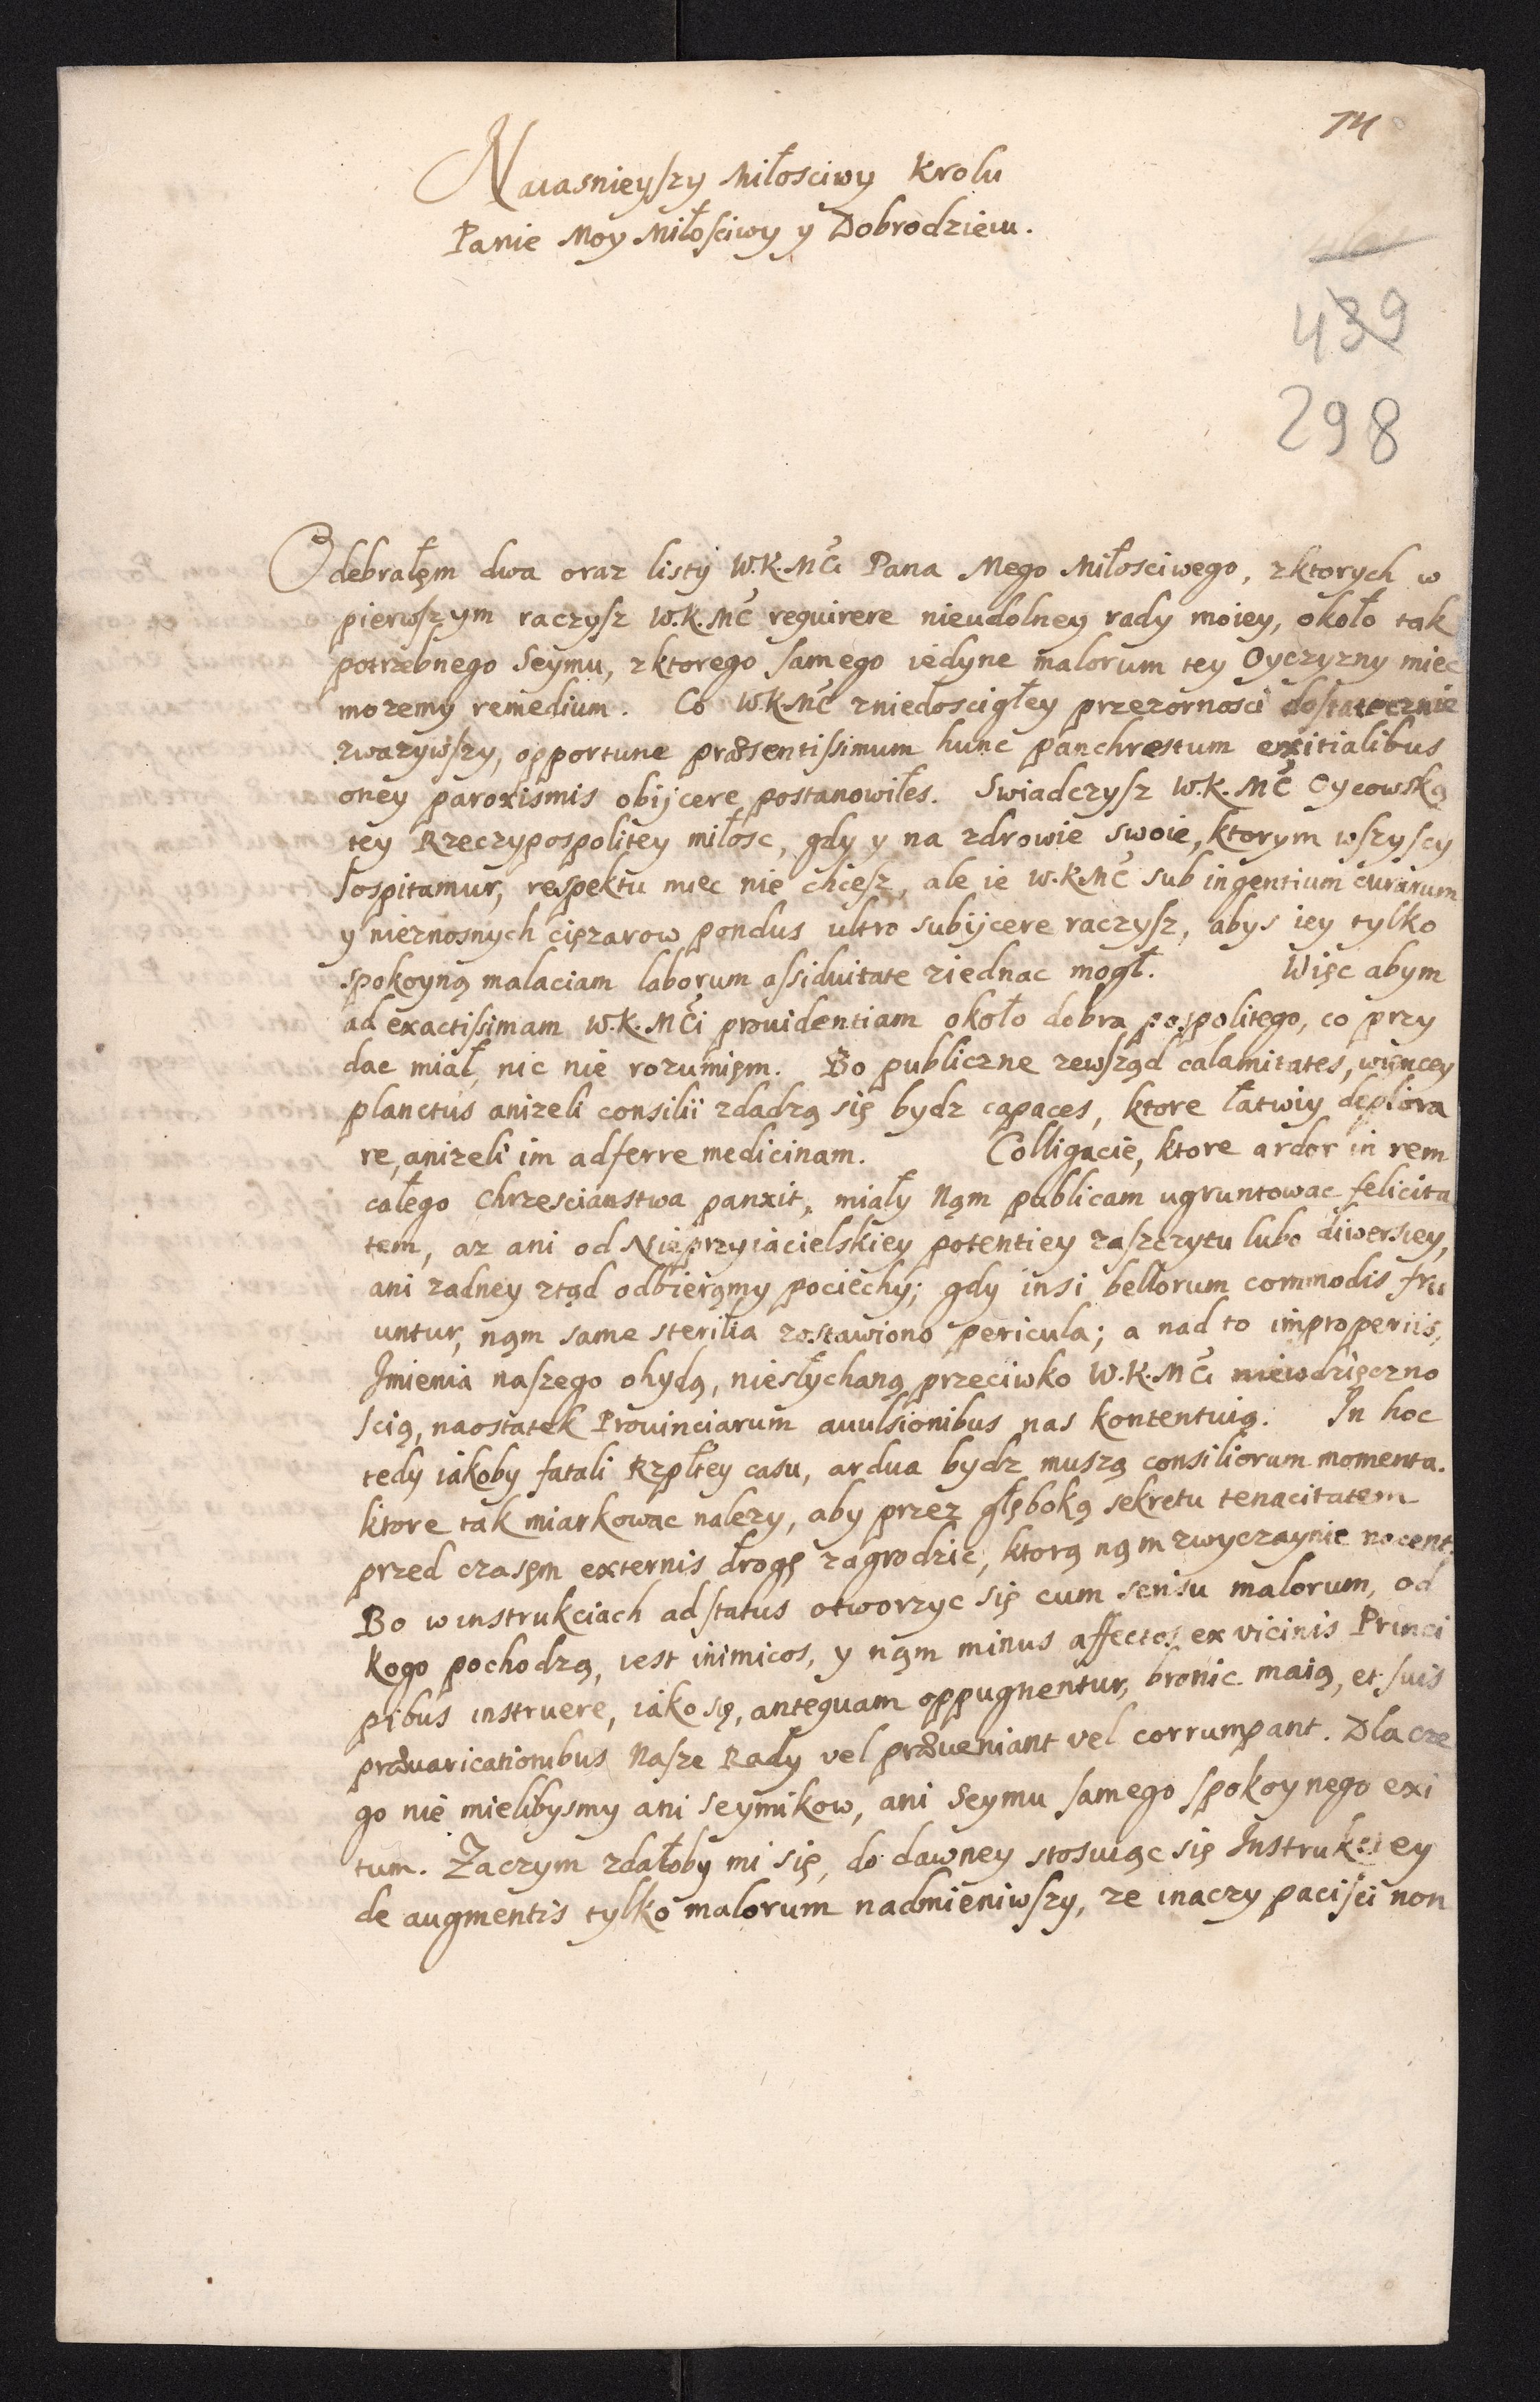 74
Naiasnieyszy Miłosciwy Krolu
Panie Moy Miłosciwy y Dobrodzieiu.
439
298
Odebrałęm dwa oraz listy W.K.Mči Pana Mego Miłosciwego, zktorych w
pierwszym raczysz W.K.Mč requirere nieudolney rady moiey, około tak
potrzebnego Seymu, zktorego samego iedyne malorum tey Oyczyzny miec
mozemy remedium. Co W.K.Mč zniedoscigłey przezornosci dostatecznie
zwazywszy, opportune præsentissimum hunc panchrestum exitialibus
oney paroxismis obijcere postanowiłes. Swiadczysz W.K.Mč Oycowską
tey Rzeczypospolitey miłosc, gdy y na zdrowie swoie, ktorym wszyscy
sospitamur, respektu miec nie chcesz, ale ie W.K.Mč sub ingentium curarum
y nieznosnych cięzarow pondus ultro subijcere raczysz, abys iey tylko
spokoyną malaciam laborum assiduitate ziednac mogł. Więc abym
ad exactissimam W.K.Mči prouidentiam około dobra pospolitego, co przy
dac miał, nic nie rozumięm. Bo publiczne zewsząd calamitates, więncey
planctus anizeli consilii zdadzą się bydz capaces, ktore łatwiy deplora
re, anizeli im adferre medicinam. Colligacie, ktore ardor in rem
całego Chrzescianstwa panxit, miały nąm publicam ugruntowac felicita
tem, az ani od Nieprzyiacielskiey potentiey zaszczytu lubo diwersiey,
ani zadney ztąd odbierąmy pociechy; gdy insi bellorum commodis fru
untur, nąm same sterilia zostawiono pericula; a nad to improperiis,
Imienia naszego ohydą, niesłychaną przeciwko W.K.Mči niewdzięczno
scią, naostatek Prouinciarum auulsionibus nas kontentuią. In hoc
tedy iakoby fatali Rzpltey casu, ardua bydz muszą consiliorum momenta.
ktore tak miarkowac nalezy, aby przez głęboką sekretu tenacitatem
przed czasęm externis drogę zagrodzic, ktorą nąm zwyczaynie nocent.
Bo w instrukciach ad status otworzyc się cum sensu malorum, od
kogo pochodzą, iest inimicos, y nąm minus affectos ex vicinis Princi
pibus instruere, iako są, antequam oppugnentur, bronic maią, et suis
præuaricationibus Nasze Rady vel præueniant vel corrumpant. Dla cze
go nie mielibysmy ani seymikow, ani Seymu samego spokoynego exi
tum. Zaczym zdałoby mi się, do dawney stosuiąc się Instrukciey
de augmentis tylko malorum nadmieniwszy, ze inaczy pacisci non